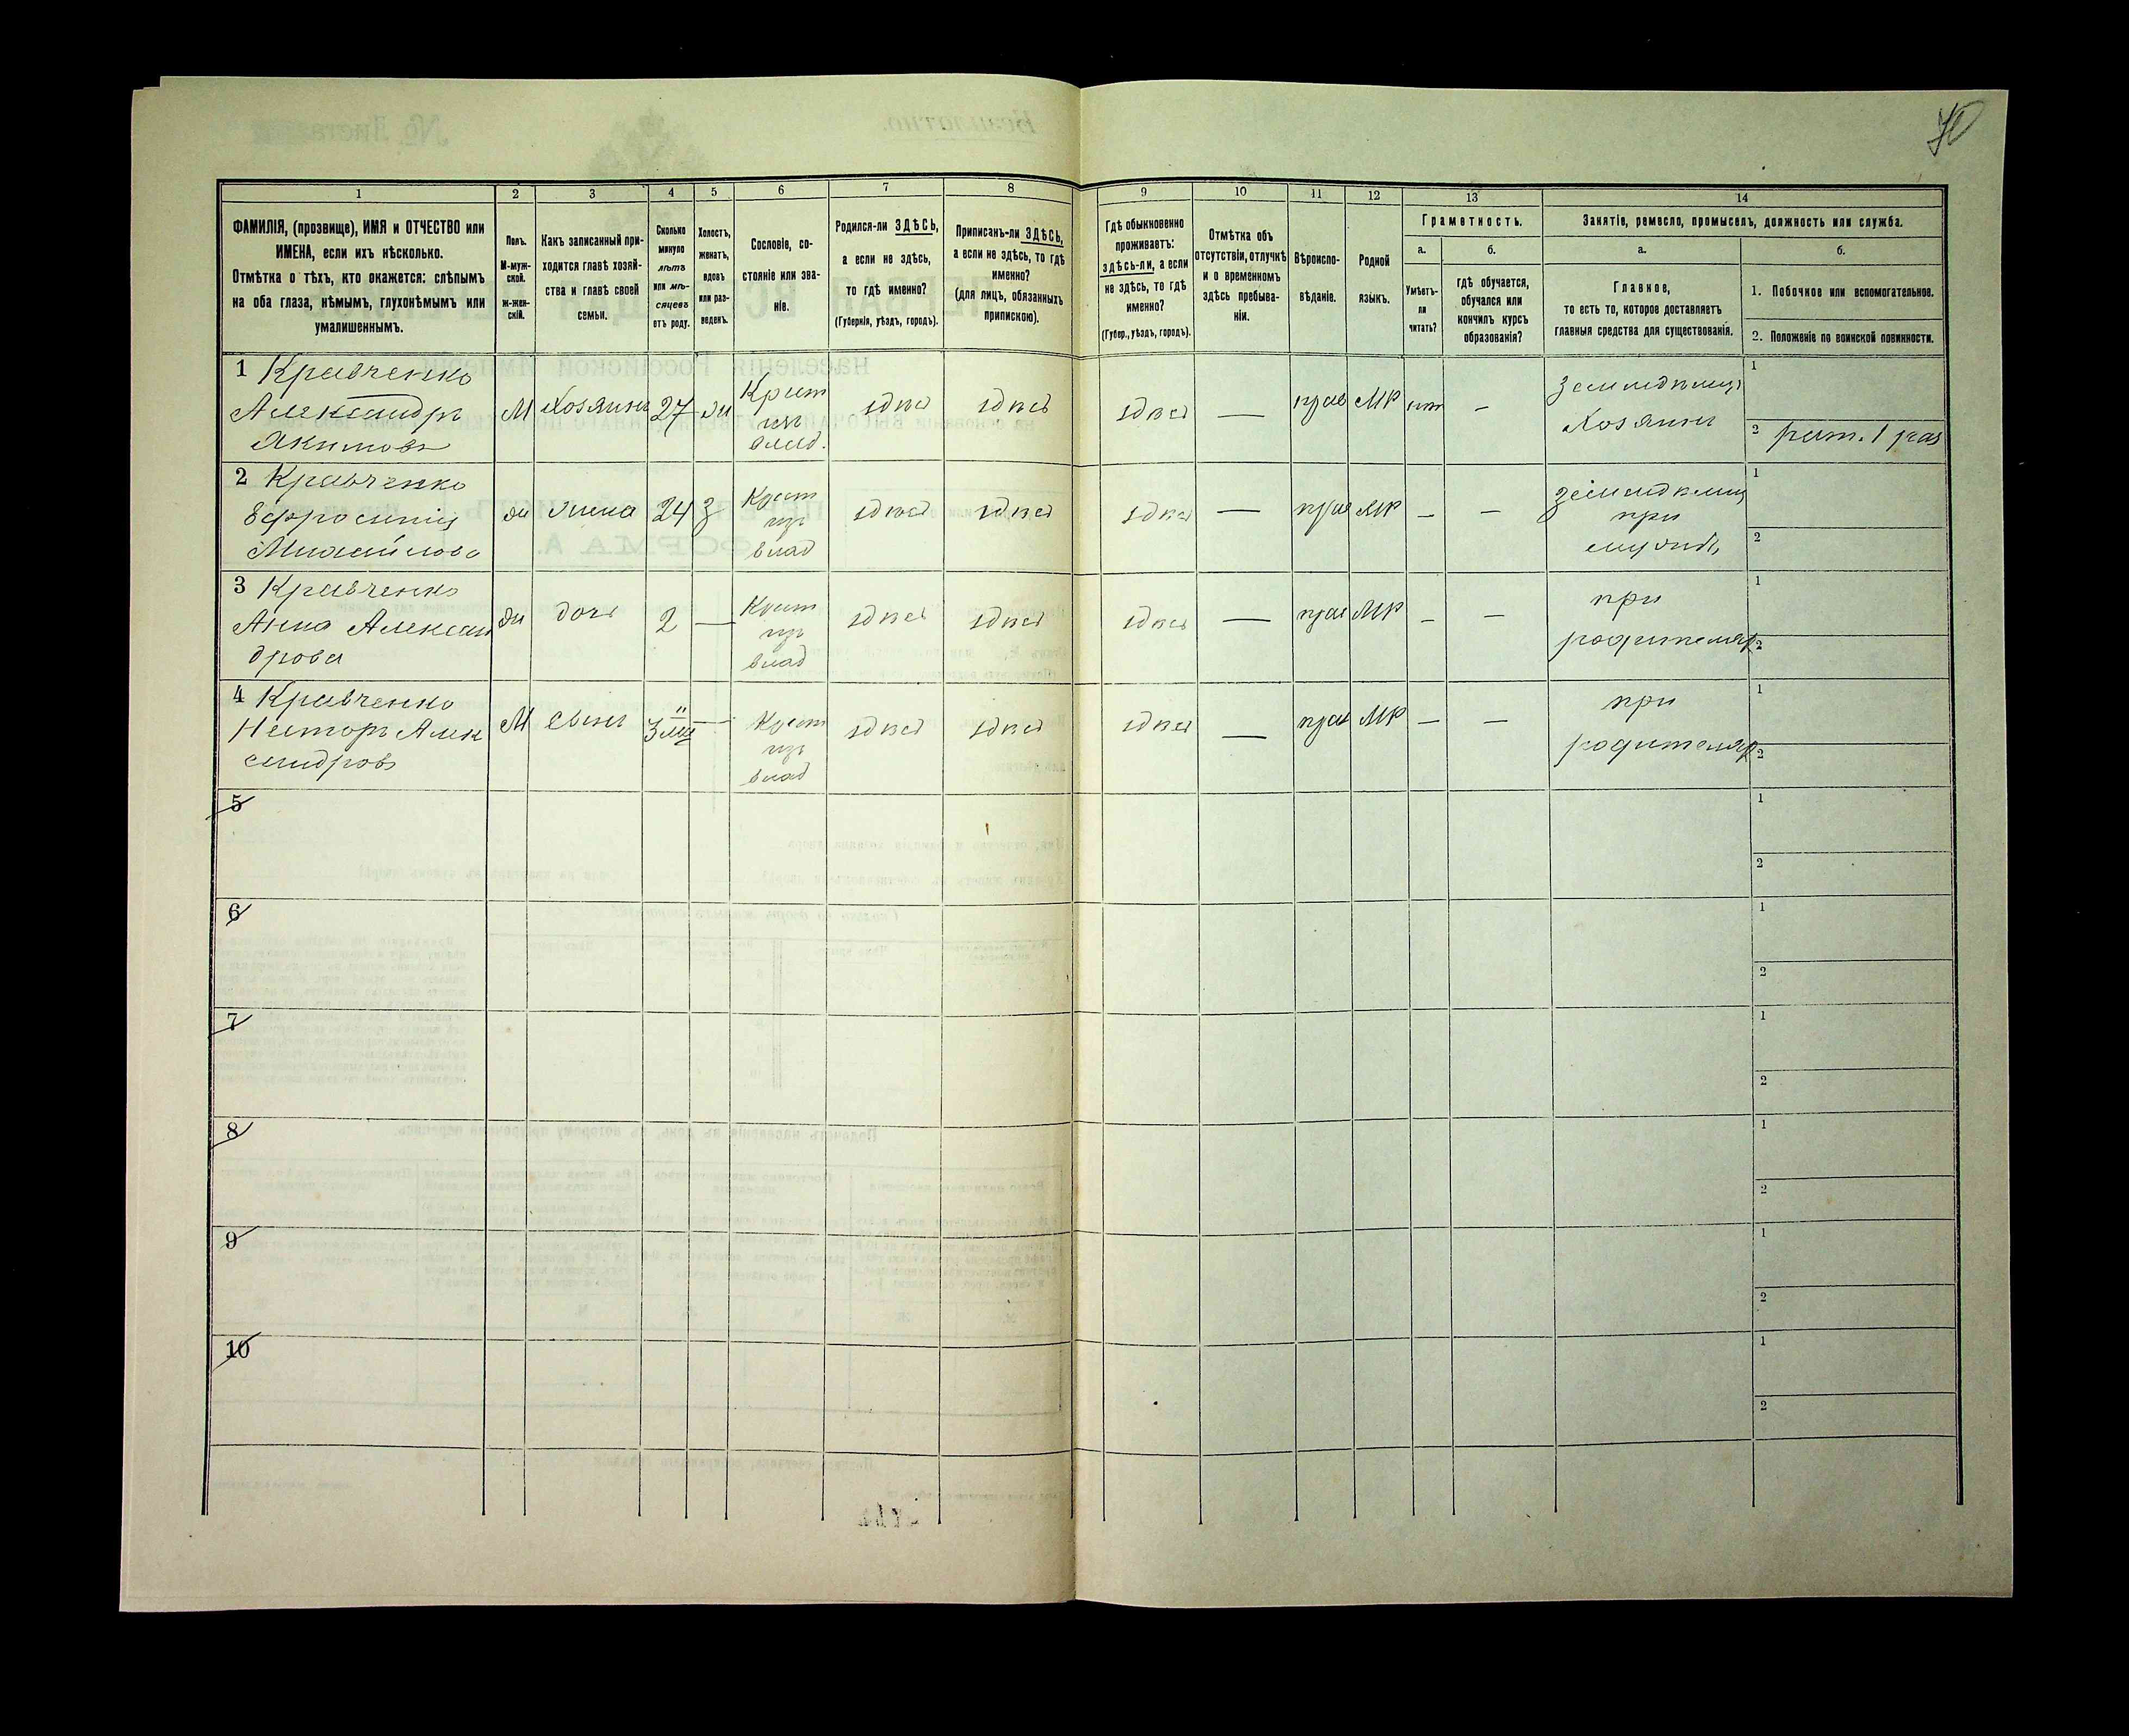 70
1
2
3
4
5
6
7
8
9
10
11
12
13
14
ФАМИЛІЯ, (прозвище), ИМЯ и ОТЧЕСТВО или
ИМЕНА, если ихъ нѣсколько.
Отмѣтка о тѣхъ, кто окажется: слѣпымъ
на оба глаза, нѣмымъ, глухонѣмымъ или
умалишеннымъ.
Полъ.
М-муж-
ской.
Ж-жен-
скій.
Какъ записанный при-
ходится главѣ хозяй-
ства и главѣ своей
семьи.
Сколько
минуло
лѣтъ
или мѣ-
сяцевъ
отъ роду.
Холостъ,
женатъ,
вдовъ
или раз-
веденъ.
Сословіе, со-
стояніе или зва-
ніе.
Родился-ли ЗДѢСЬ,
а если не здѣсь,
то гдѣ именно?
(Губернія, уѣздъ, городъ).
Приписанъ-ли ЗДѢСЬ,
а если не здѣсь, то гдѣ
именно?
(для лицъ, обязанныхъ
припискою).
Гдѣ обыкновенно
проживаетъ:
здѣсь-ли, а если
не здѣсь, то гдѣ
именно?
(Губер., уѣздъ, городъ).
Отмѣтка объ
отсутствіи, отлучкѣ
и о временномъ
здѣсь пребыва-
ніи.
Вѣроиспо-
вѣданіе.
Родной
языкъ.
Грамотность.
а.
Умѣетъ-
ли
читать?
б.
гдѣ обучается,
обучался или
кончилъ курсъ
образованія?
Занятіе, ремесло, промыселъ, должность или служба.
а.
Главное,
то есть то, которое доставляетъ
главныя средства для существованія.
б.
1. Побочное или вспомогательное.
2. Положеніе по воинской повинности.
1 Кравченко
Александръ
Якимовъ
М
Хозяинъ
27
Крест
изъ
влад.
здѣсь
здѣсь
здѣсь
—
прав
МР
нѣт
—
земледѣлец
Хозяинъ
1
2 рат. 1 раз
2 Кравченко
Ефросинія
Михайлова
ж
жена
24
З
Крест
изъ
влад
здѣсь
здѣсь
здѣсь
—
прав
МР
—
—
земледѣлец
при
мужѣ
1
2
3 Кравченко
Анна Алексан
дрова
ж
дочь
2
—
Крест
изъ
влад
здѣсь
здѣсь
здѣсь
—
прав
МР
—
—
при
родителях
1
2
4 Кравченко
Несторъ Алек
сандровъ
М
сынъ
—
Крест
изъ
влад
здѣсь
здѣсь
здѣсь
—
прав
МР
—
—
при
родителях
1
2
5
1
2
6
1
2
7
1
2
8
1
2
9
1
2
10
1
2